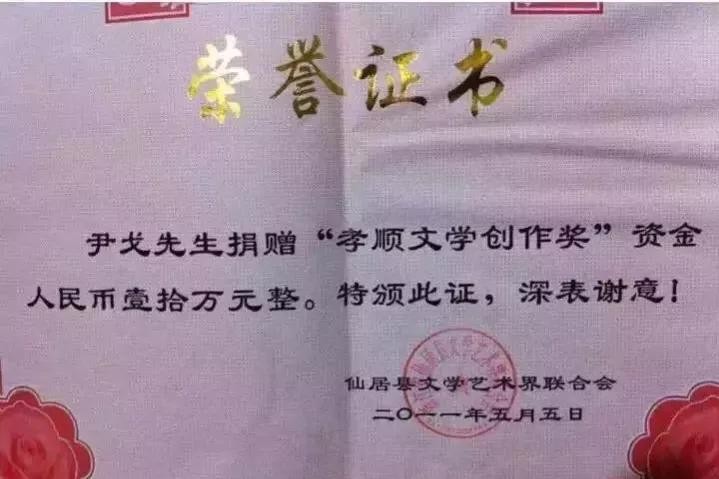 荣誉证书
尹戈先生捐赠“孝顺文学创作奖”资金
人民币壹拾万元整。特颁此证，深表谢意！
仙居县文学艺术界联合会
二〇一一年五月五日